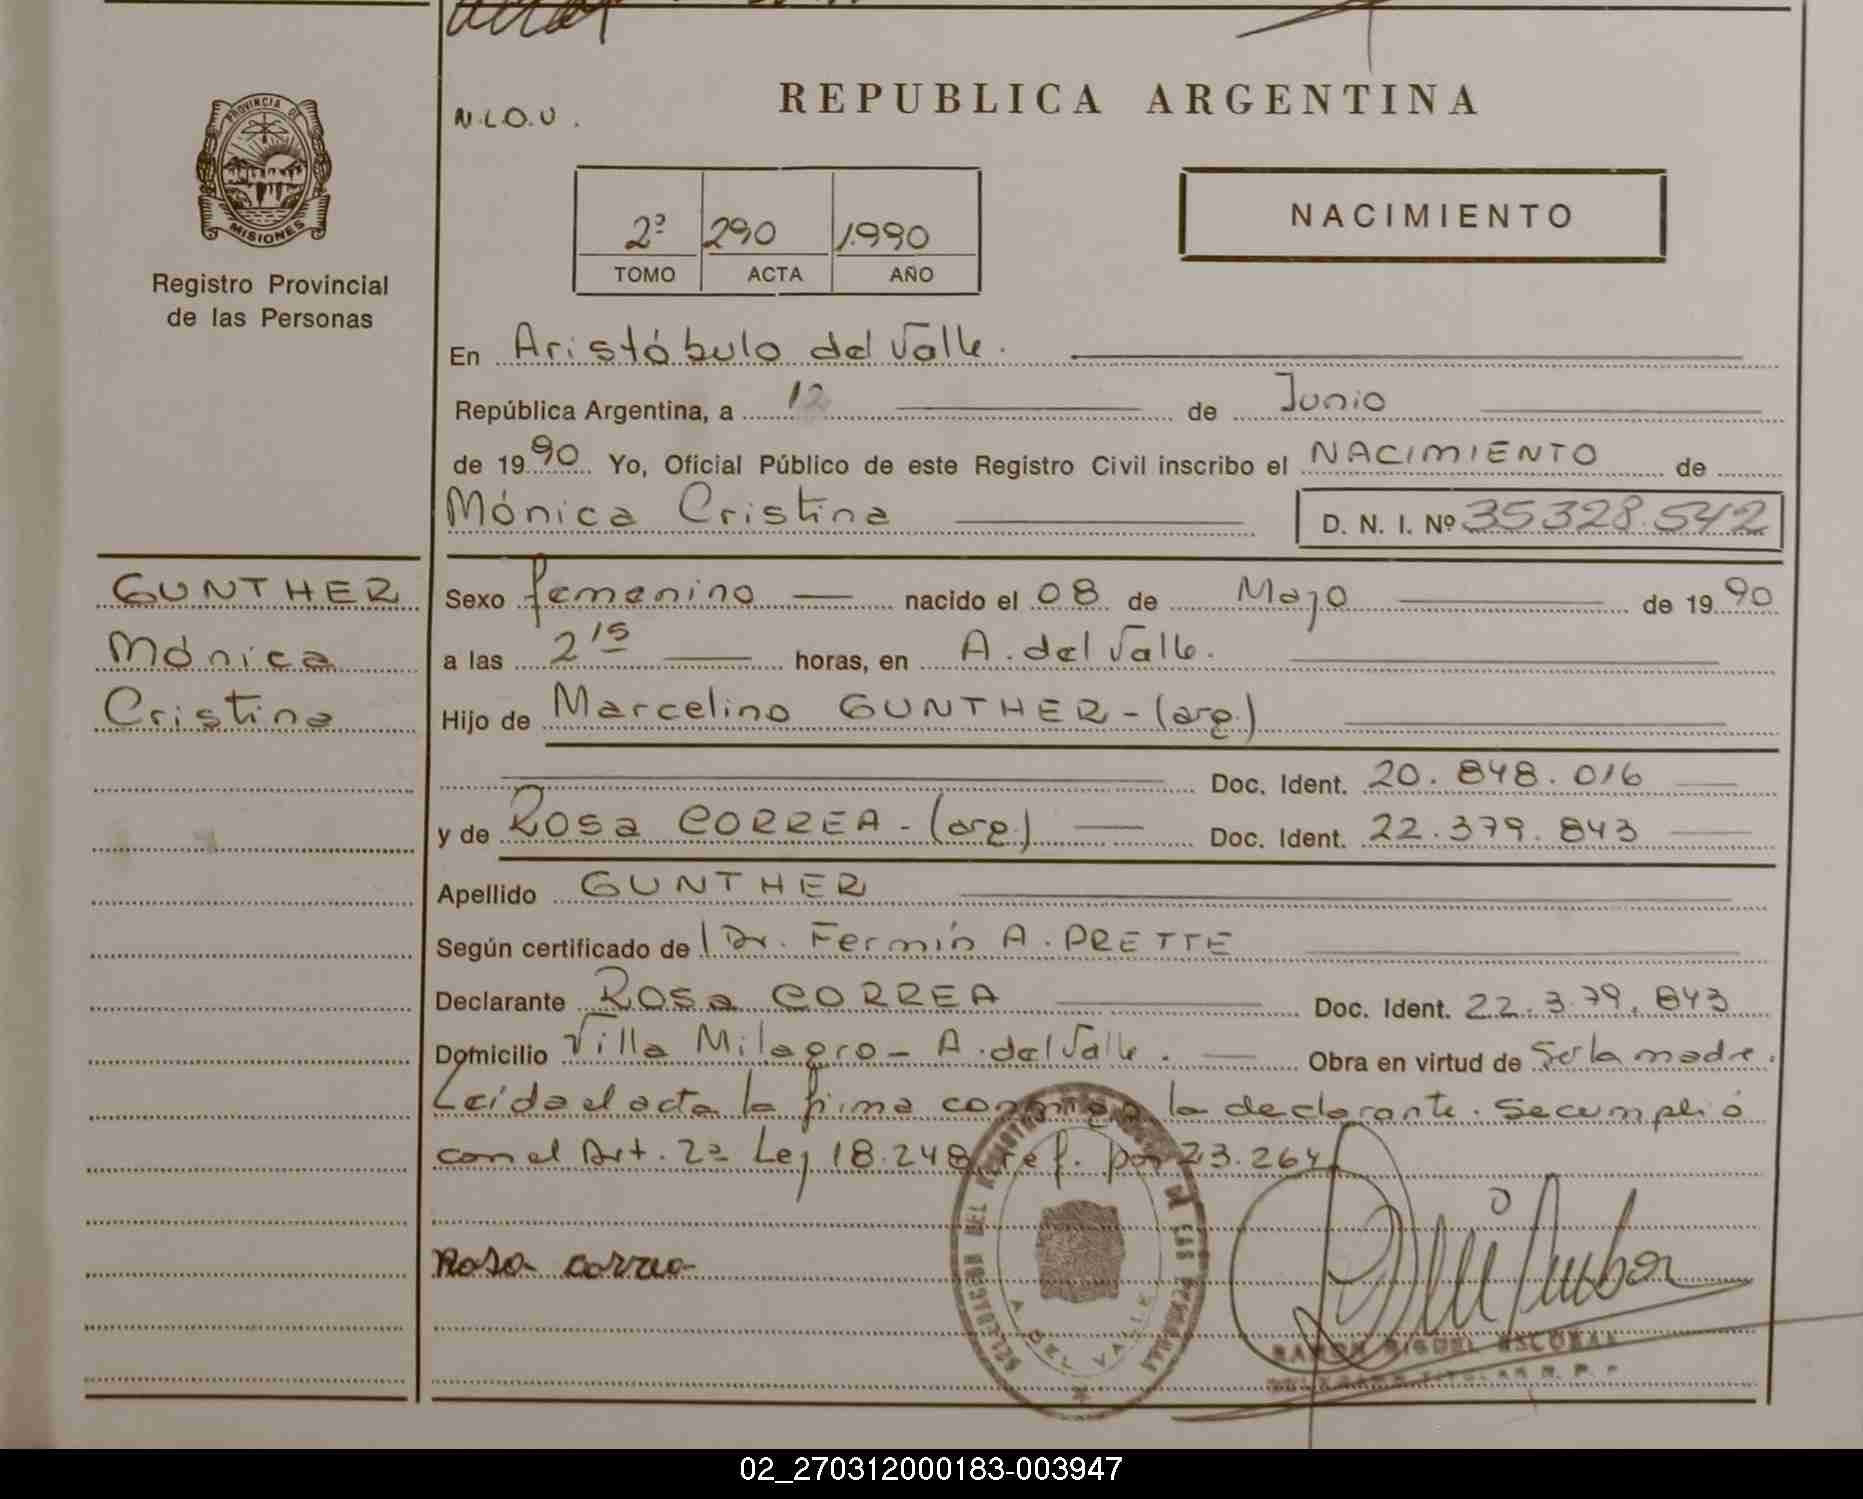 N.L.O.U.
REPUBLICA ARGENTINA
PROVINCIA DE
MISIONES
Registro Provincial
de las Personas
2º 290 1.990
TOMO ACTA AÑO
NACIMIENTO
En Aristóbulo del Valle.
República Argentina, a 12 de Junio
de 1990 Yo, Oficial Público de este Registro Civil inscribo el NACIMIENTO de
Mónica Cristina D. N. I. Nº 35328.542
GUNTHER
Mónica
Cristina
Sexo femenino nacido el 08 de Mayo de 1990
a las 2 15 horas, en A. del Valle.
Hijo de Marcelino GUNTHER - (arg.)
Doc. Ident. 20.848.016
y de Rosa CORREA - (arg.) Doc. Ident. 22.379.843
Apellido GUNTHER
Según certificado de Dr. Fermín A. PRETTE
Declarante Rosa CORREA Doc. Ident. 22.379.843
Domicilio Villa Milagro - A. del Valle. Obra en virtud de Ser la madre.
Leída el acta la firma conmigo la declarante. Se cumplió
con el Art. 2º Ley 18.248 ref. por 23.264
Rosa Correa
DELEGACION DEL REGISTRO DE LAS PERSONAS
A. DEL VALLE
RAMON MIGUEL ESCOBAR
DELEGADO TITULAR R. P. P.
02_270312000183-003947